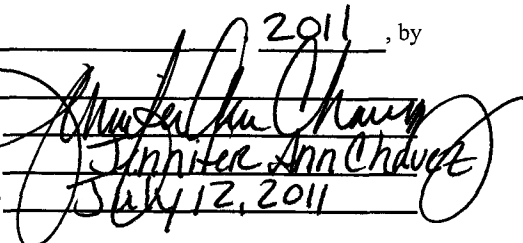 2011, by
Jennifer Ann Chavez
Jennifer Ann Chavez
July 12, 2011